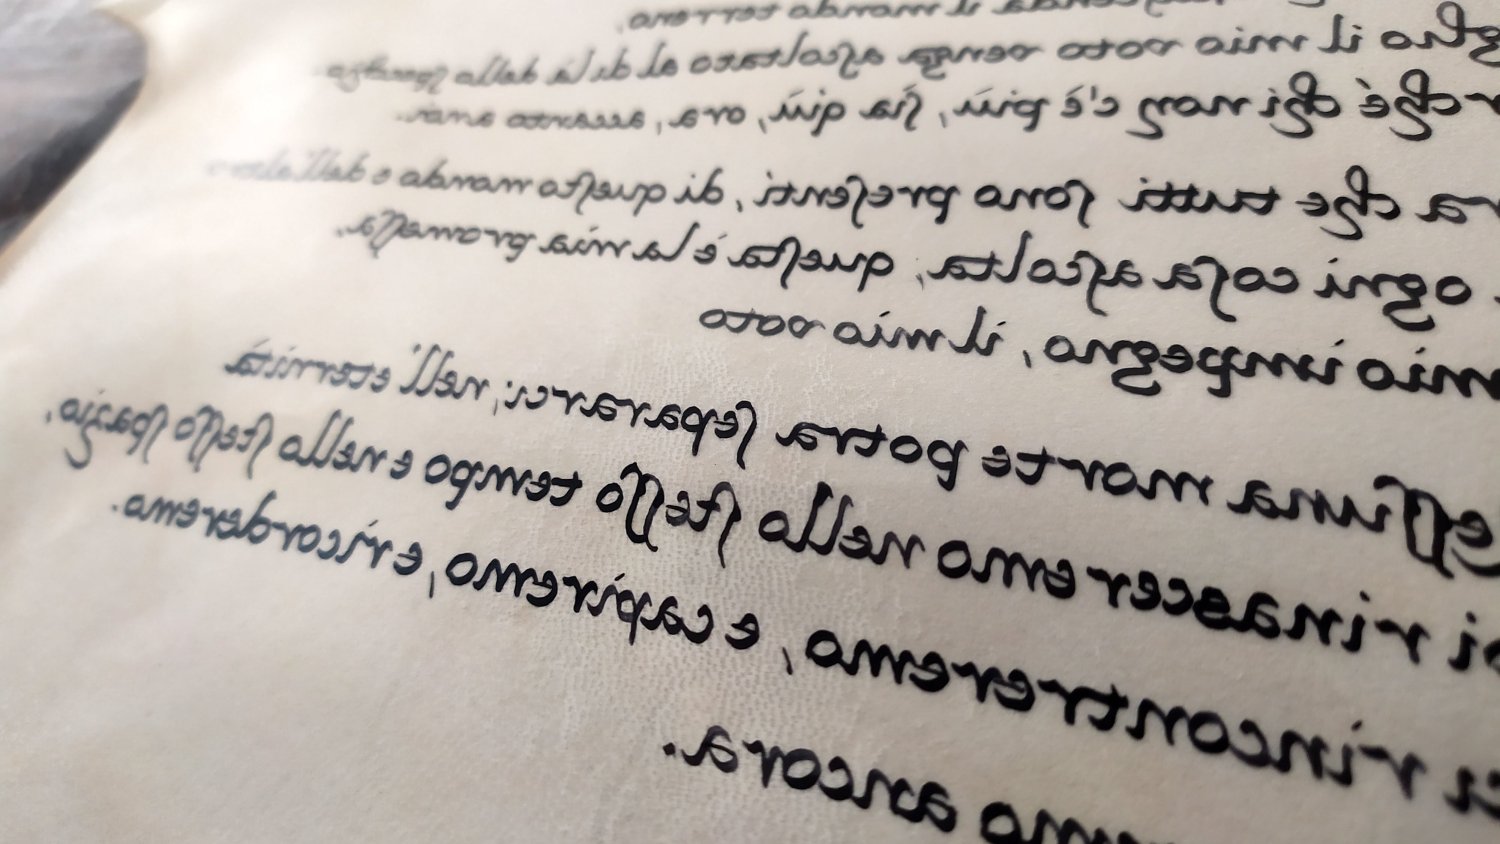 il mondo terreno,
glio il mio voto venga ascoltato al di là dello specchio
rché chi non c'è più, sia qui, ora, accanto a noi.
ra che tutti sono presenti, di questo mondo e dell'altro
ogni cosa ascolta, questa è la mia promessa,
mio impegno, il mio voto
essuna morte potra separarci, nell'eternità
oi rinasceremo nello stesso tempo e nello stesso spazio,
ci rincontreremo, e capiremo, e ricorderemo.
emo ancora.